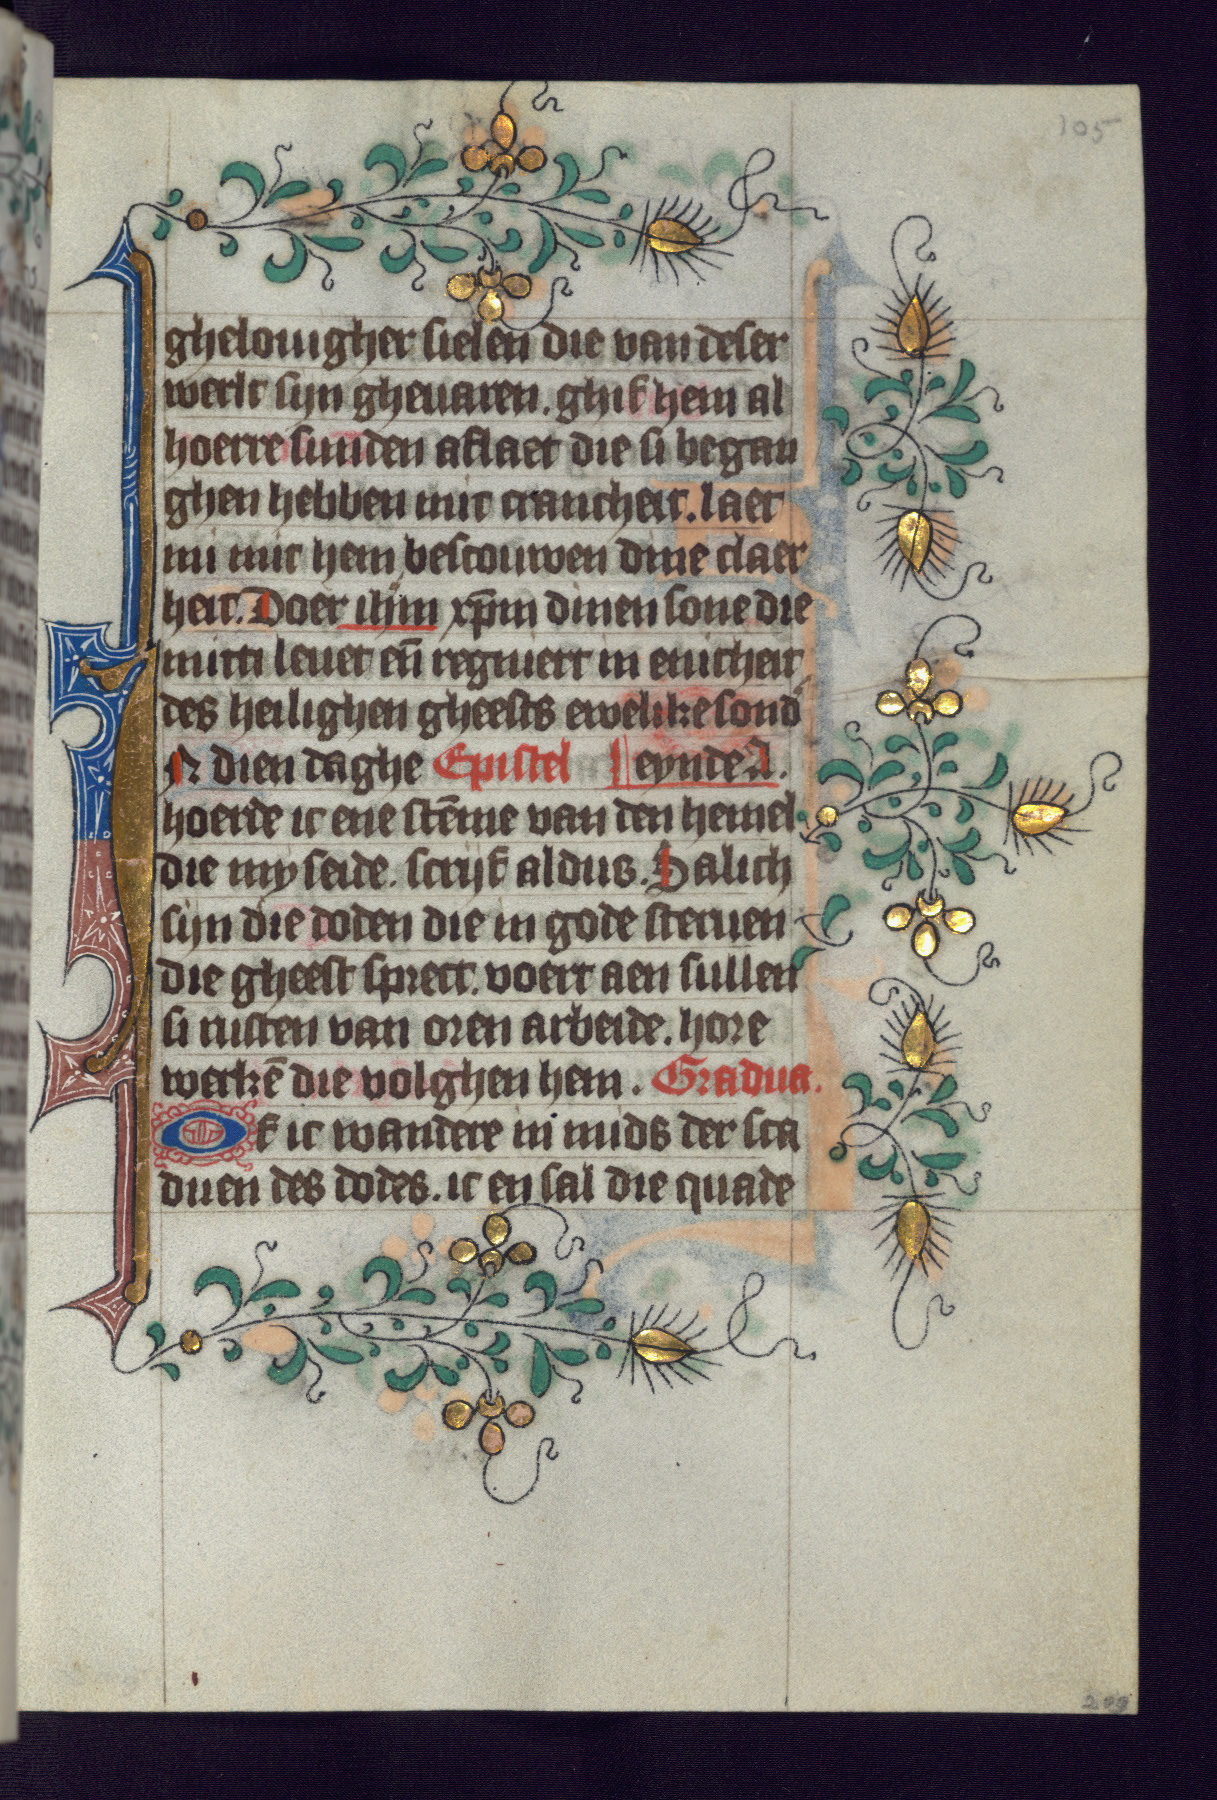 105
ghelouigher sielen die van deser
werlt sijn gheuaren. ghif hem al
hoerre sunden aflaet die si began
ghen hebben mit crancheit. laet
mi mit hem bescouwen dine claer
heit. Doer ihm̄ xp̄m dinen sone die
mitti leuet en̄ regniert in enicheit
des heilighen gheests ewelike sond᷑
N dien daghe Epistel eynde
hoerde ic ene stēme van den hemel
die my seide. scrijf aldus. Salich
sijn die doden die in gode steruen
die gheest sprect. voert aen sullen
si rusten van oren arbeide. hore
werkē die volghen hem. Gradua.
Of ic wandere in mids der sca
duen des dodes. ic en sal die quade